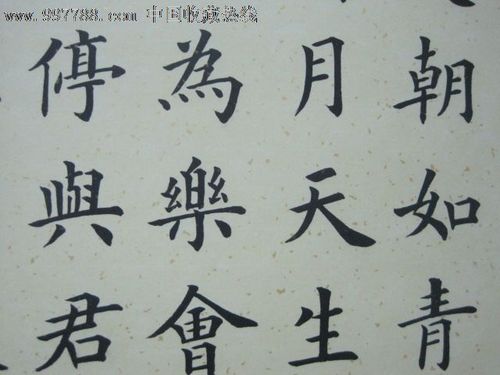 www.997788.com 中国收藏热线
朝如青
月天生
為樂會
停與君